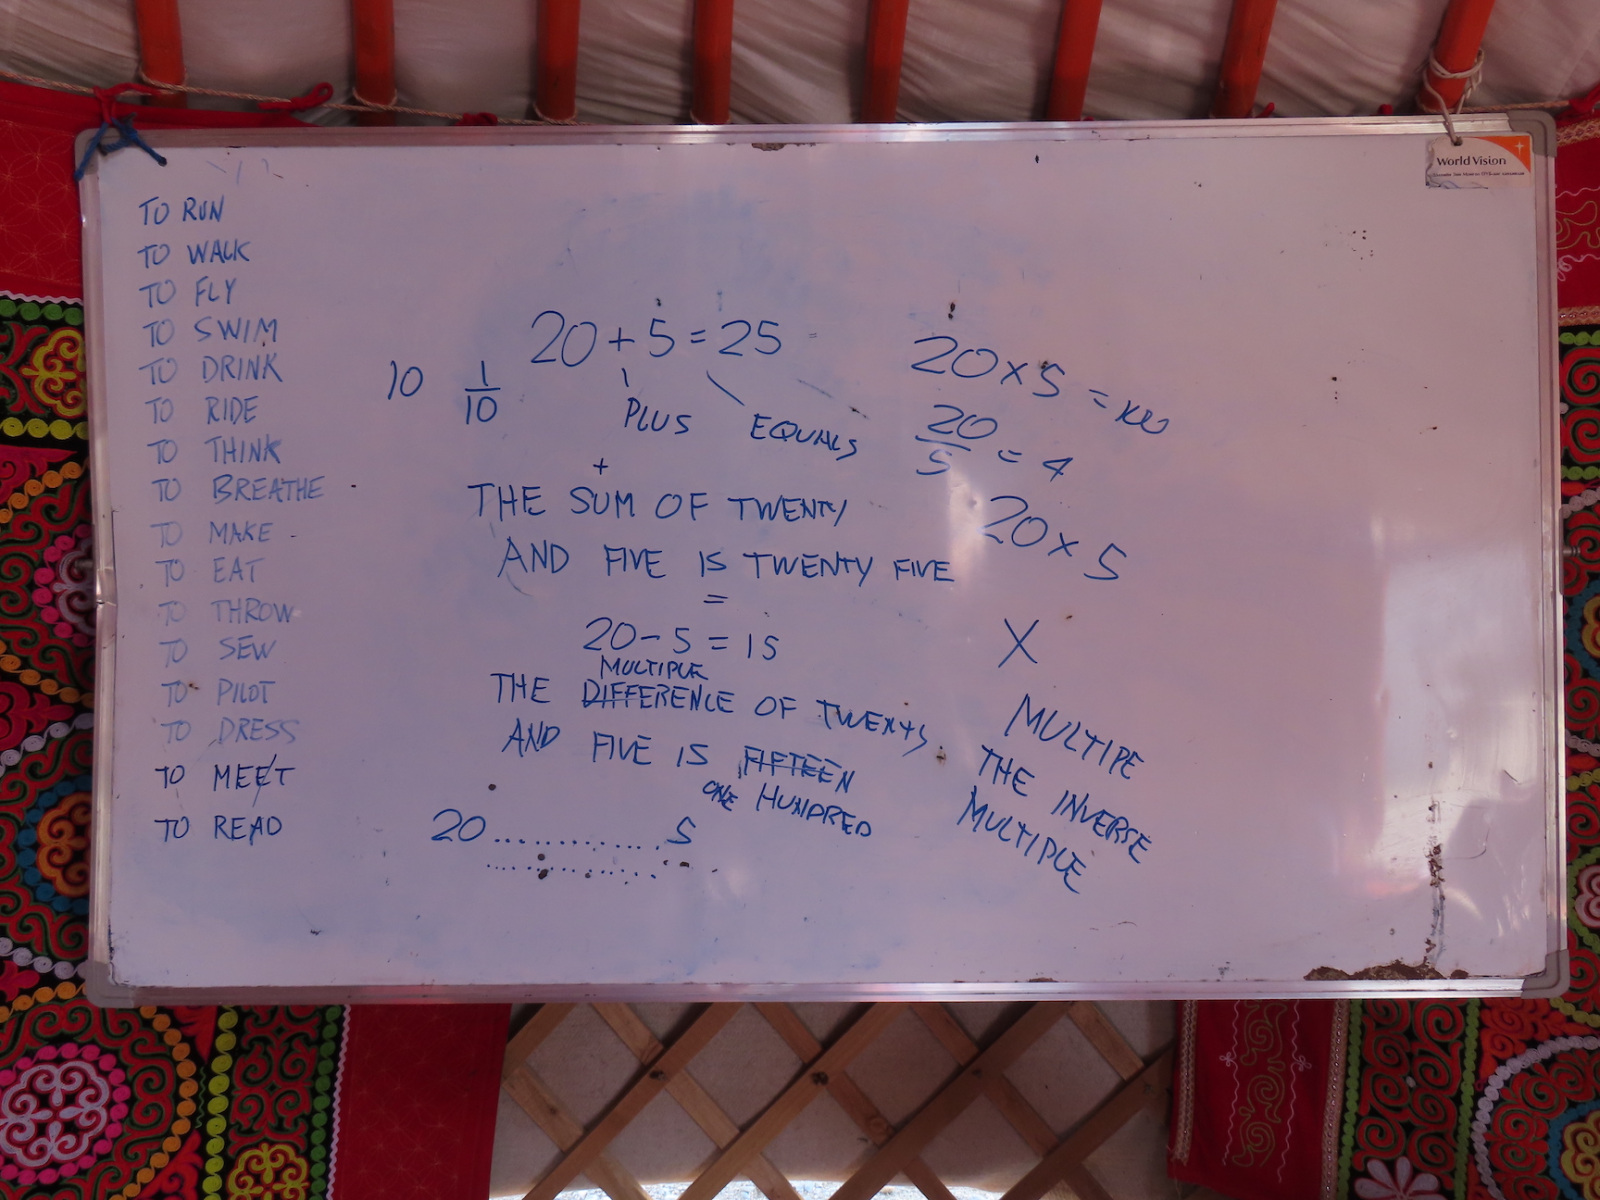 World Vision
TO RUN
TO WALK
TO FLY
TO SWIM
TO DRINK
TO RIDE
TO THINK
TO BREATHE
TO MAKE
TO EAT
TO THROW
TO SEW
TO PILOT
TO DRESS
TO MEET
TO READ
10 1/10
20 + 5 = 25
PLUS EQUALS
+
THE SUM OF TWENTY
AND FIVE IS TWENTY FIVE
=
20 - 5 = 15
MULTIPLE
THE DIFFERENCE OF TWENTY
AND FIVE IS FIFTEEN
ONE HUNDRED
20 ............ 5
20 x 5 = 100
20/5 = 4
20 x 5
X
MULTIPE
THE INVERSE
MULTIPLE